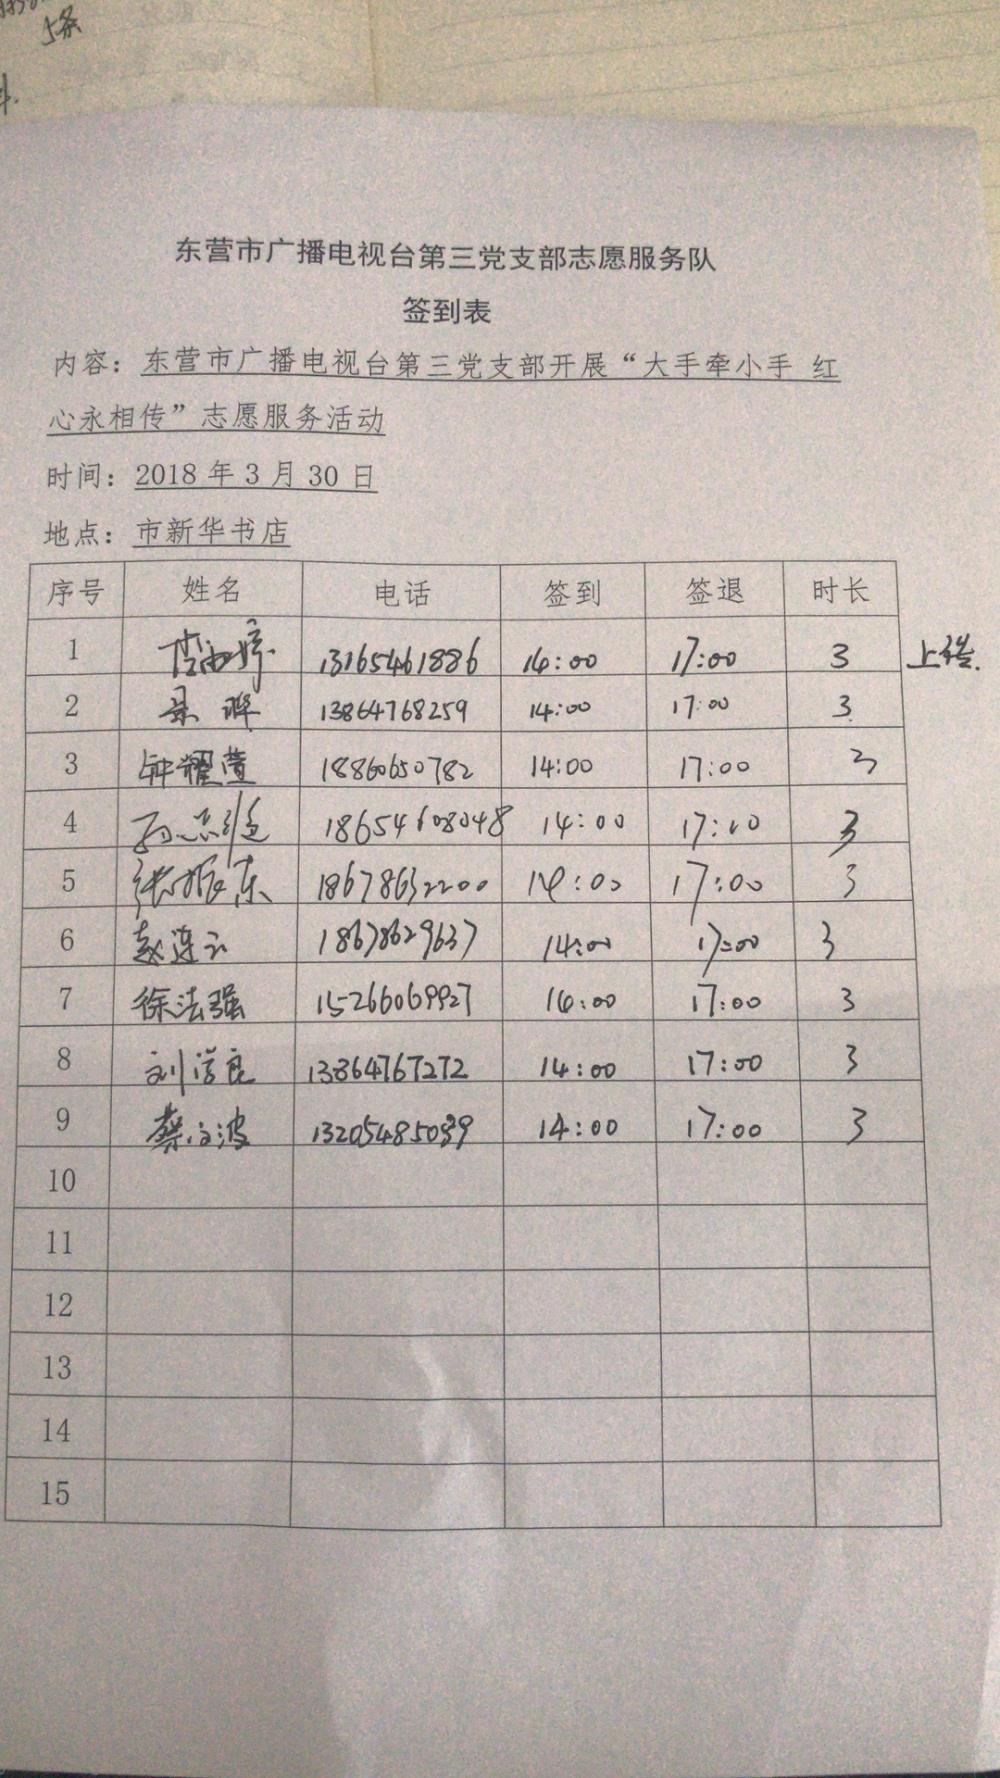 5条
东营市广播电视台第三党支部志愿服务队
签到表
内容：东营市广播电视台第三党支部开展“大手牵小手 红
心永相传”志愿服务活动
时间：2018 年 3 月 30 日
地点：市新华书店
序号 姓名 电话 签到 签退 时长
1 13165461886 14:00 17:00 3 上传.
2 13864768259 14:00 17:00 3
3 钟耀萱 18860650782 14:00 17:00 3
4 18654608048 14:00 17:00 3
5 张振东 18678632200 14:00 17:00 3
6 赵连云 18678629637 14:00 17:00 3
7 徐法强 15266069927 14:00 17:00 3
8 刘学良 13864767272 14:00 17:00 3
9 13205485039 14:00 17:00 3
10
11
12
13
14
15